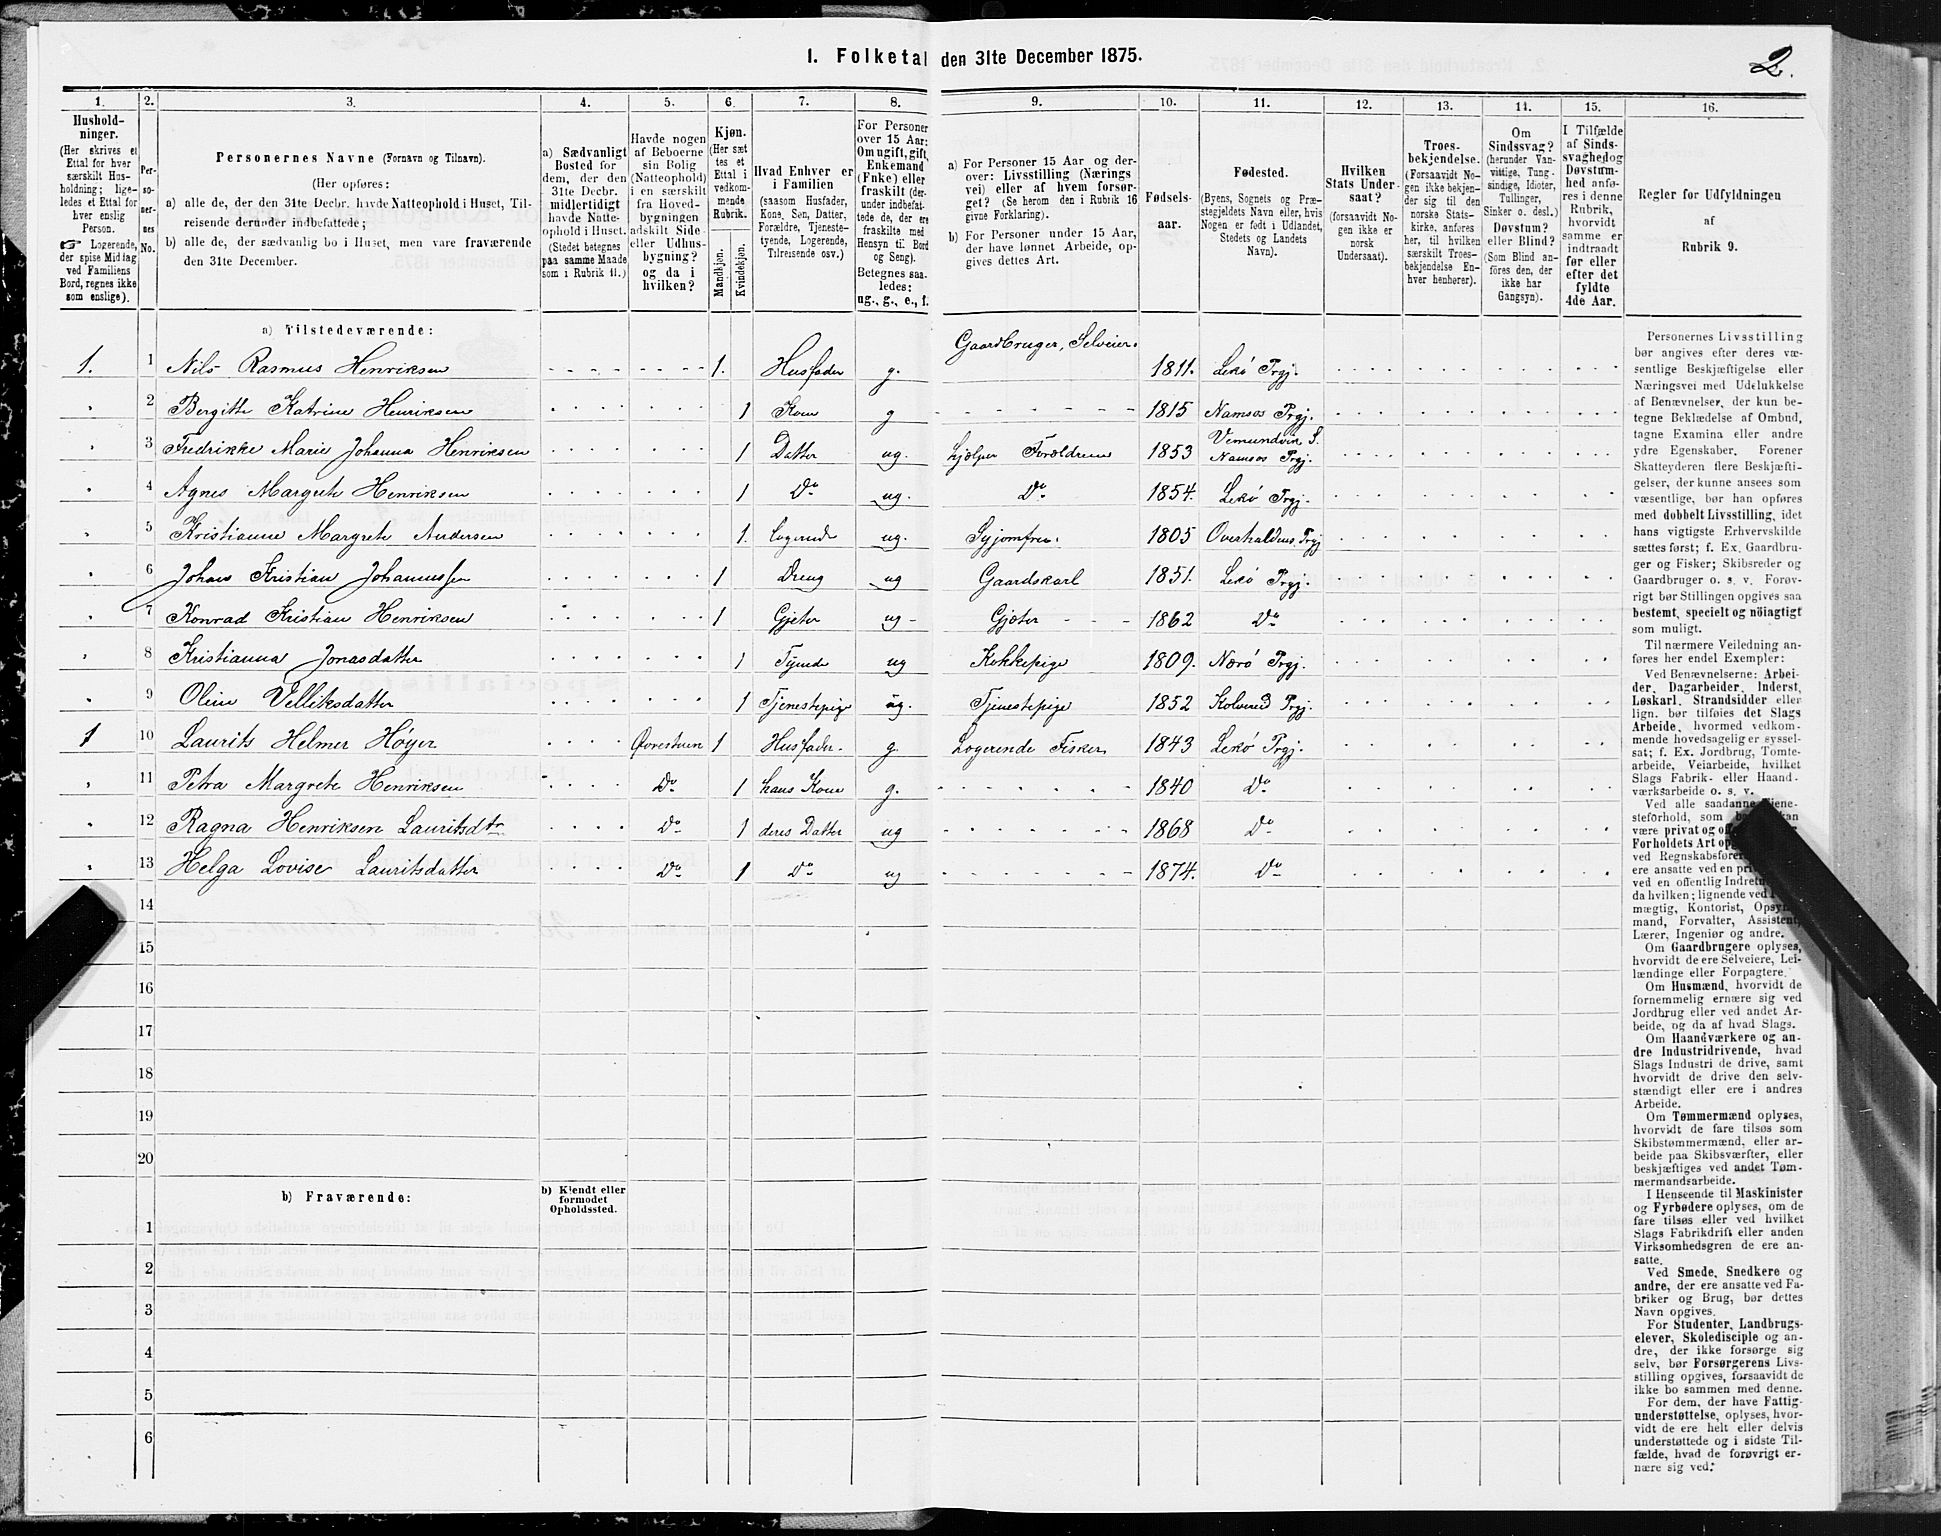 1. Folketal den 31te December 1875.
2.
1. 2. 3. 4. 5. 6. 7. 8. 9. 10. 11. 12. 13. 14. 15. 16.
Husholdninger.
(Her skrives et Ettal for hver særskilt Husholdning; ligeledes et Ettal for hver enslig Person.
☞ Logerende, der spise Middag ved Familiens Bord, regnes ikke som enslige).
Personernes No.
Personernes Navne (Fornavn og Tilnavn).
(Her opføres:
a) alle de, der den 31te Decbr. havde Natteophold i Huset, Tilreisende derunder indbefattede;
b) alle de, der sædvanlig bo i Huset, men vare fraværende den 31te December.
a) Sædvanligt Bosted for dem, der den 31te Decbr. midlertidigt havde Natteophold i Huset. (Stedet betegnes paa samme Maade som i Rubrik 11.)
Havde nogen af Beboerne sin Bolig (Natteophold) i en særskilt fra Hovedbygningen adskilt Side- eller Udhusbygning? og da i hvilken?
Kjøn.
(Her sættes et Ettal i vedkommende Rubrik.
Mandkjøn.
Kvindekjøn.
Hvad Enhver er i Familien
(saasom Husfader, Kone, Søn, Datter, Forældre, Tjenestetyende, Logerende, Tilreisende osv.)
For Personer over 15 Aar: Om ugift, gift, Enkemand (Enke) eller fraskilt (derunder indbefattede de, der ere fraskilte med Hensyn til Bord og Seng).
Betegnes saaledes: ug., g., e., f.
a) For Personer 15 Aar og derover: Livsstilling (Næringsvei) eller af hvem forsørget? (Se herom den i Rubrik 16 givne Forklaring).
b) For Personer under 15 Aar, der have lønnet Arbeide, opgives dettes Art.
Fødselsaar.
Fødested.
(Byens, Sognets og Præstegjeldets Navn eller, hvis Nogen er født i Udlandet, Stedets og Landets Navn).
Hvilken Stats Undersaat?
(forsaavidt Nogen ikke er norsk Undersaat).
Troesbekjendelse.
(Forsaavidt Nogen ikke bekjender sig til den norske Statskirke, anføres her, til hvilken særskilt Troesbekjendelse Enhver henhører).
Om Sindssvag? (herunder Vanvittige, Tungsindige, Idioter, Tullinger, Sinker o. desl.) Døvstum? eller Blind? (Som Blind anføres den, der ikke har Gangsyn).
I Tilfælde af Sindssvaghed og Døvstumhed anføres i denne Rubrik, hvorvidt samme er indtraadt før eller efter det fyldte 4de Aar.
Regler for Udfyldningen af Rubrik 9.
a) Tilstedeværende:
1. 1 Nils Rasmus Henriksen 1. Husfader g. Gaardbruger, Selveier. 1811. Lekø Prgj.
2 Bergitte Katrine Henriksen 1 Kone g 1815 Namsos Prgj.
3 Fredrikke Marie Johanna Henriksen 1 Datter ug. hjælper Forældrene 1853 Vemundvin S. Namsos Prgj.
4 Agnes Margrete Henriksen 1 Do ug. Do 1854. Lekø Prgj.
5 Kristianne Margrete Andersen 1. Logerende ug. Syjomfru. 1805 Overhaldens Prgj
6 Johan Kristian Johannessen 1 Dreng ug Gaardskarl 1851. Lekø Prgj.
7 Konrad Kristian Henriksen 1 Gjeter ug Gjæter 1862 Do
8 Kristianna Jonasdatter 1 Tyende ug Kokkepige 1809. Nærø Prgj.
9 Oline Velliksdatter 1 Tjenestepige ug. Tjenestepige 1852 Kolvered Prgj.
1 10 Laurits Helmer Høyer Øvrestuen 1 Husfader. g. Logerende Fisker 1843 Lekø Prgj.
11 Petra Margrete Henriksen Do 1 hans Kone g. 1840 Do
12 Ragna Henriksen Lauritsdtr Do 1 deres Datter ug 1868 Do
13 Helga Lovise Lauritsdatter Do 1 Do ug 1874. Do
14
15
16
17
18
19
20
b) Fraværende:
b) Kjendt eller formodet Opholdssted.
1
2
3
4
5
6
Personernes Livsstilling
bør angives efter deres væ-
sentlige Beskjæftigelse eller
Næringsvei med Udelukkelse
af Benævnelser, der kun be-
tegne Beklædelse af Ombud,
tagne Examina eller andre
ydre Egenskaber. Forener
Skatteyderen flere Beskjæfti-
gelser, der kunne ansees som
væsentlige, bør han opføres
med dobbelt Livsstilling, idet
hans vigtigste Erhvervskilde
sættes først; f. Ex. Gaardbru-
ger og Fisker; Skibsreder og
Gaardbruger o. s. v. Forøv-
rigt bør Stillingen opgives saa
bestemt, specielt og nöiagtigt
som muligt.
Til nærmere Veiledning an-
føres her endel Exempler:
Ved Benævnelserne: Arbei-
der, Dagarbeider, Inderst,
Løskarl, Strandsidder eller
lign. bør tilføies det Slags
Arbeide, hvormed vedkom-
mende hovedsagelig er syssel-
sat; f. Ex. Jordbrug, Tomte-
arbeide, Veiarbeide, hvilket
Slags Fabrik- eller Haand-
værksarbeide o. s. v.
Ved alle saadanne Tjene-
steforhold, som kan
være privat og
Forholdets Art
ved Regnskabsfører
ere ansatte ved en
ved en offentlig
da hvilken; lignende ved
mægtig, Kontorist,
mand, Forvalter, Assistent,
Lærer, Ingeniør og andre.
Om Gaardbrugere oplyses,
hvorvidt de ere Selveiere, Lei-
lændinge eller Forpagtere.
Om Husmænd, hvorvidt de
fornemmelig ernære sig ved
Jordbrug eller ved andet Ar-
beide, og da af hvad Slags.
Om Haandværkere og an-
dre Industridrivende, hvad
Slags Industri de drive, samt
hvorvidt de drive den selv-
stændigt eller ere i andres
Arbeide.
Om Tømmermænd oplyses,
hvorvidt de fare tilsøs som
Skibstømmermænd, eller ar-
beide paa Skibsværfter, eller
beskjæftiges ved andet Tøm-
mermandsarbeide.
I Henseende til Maskinister
og Fyrbødere oplyses, om de
fare tilsøs eller ved hvilket
Slags Fabrikdrift eller anden
Virksomhedsgren de ere an-
satte.
Ved Smede, Snedkere og
andre, der ere ansatte ved Fa-
briker og Brug, bør dettes
Navn opgives.
For Studenter, Landbrugs-
elever, Skoledisciple og an-
dre, der ikke forsørge sig
selv, bør Forsørgerens Livs-
stilling opgives, forsaavidt de
ikke bo sammen med denne.
For dem, der have Fattig-
understøttelse, oplyses, hvor-
vidt de ere helt eller delvis
understøttede og i sidste Til-
fælde, hvad de forøvrigt er-
nære sig ved.